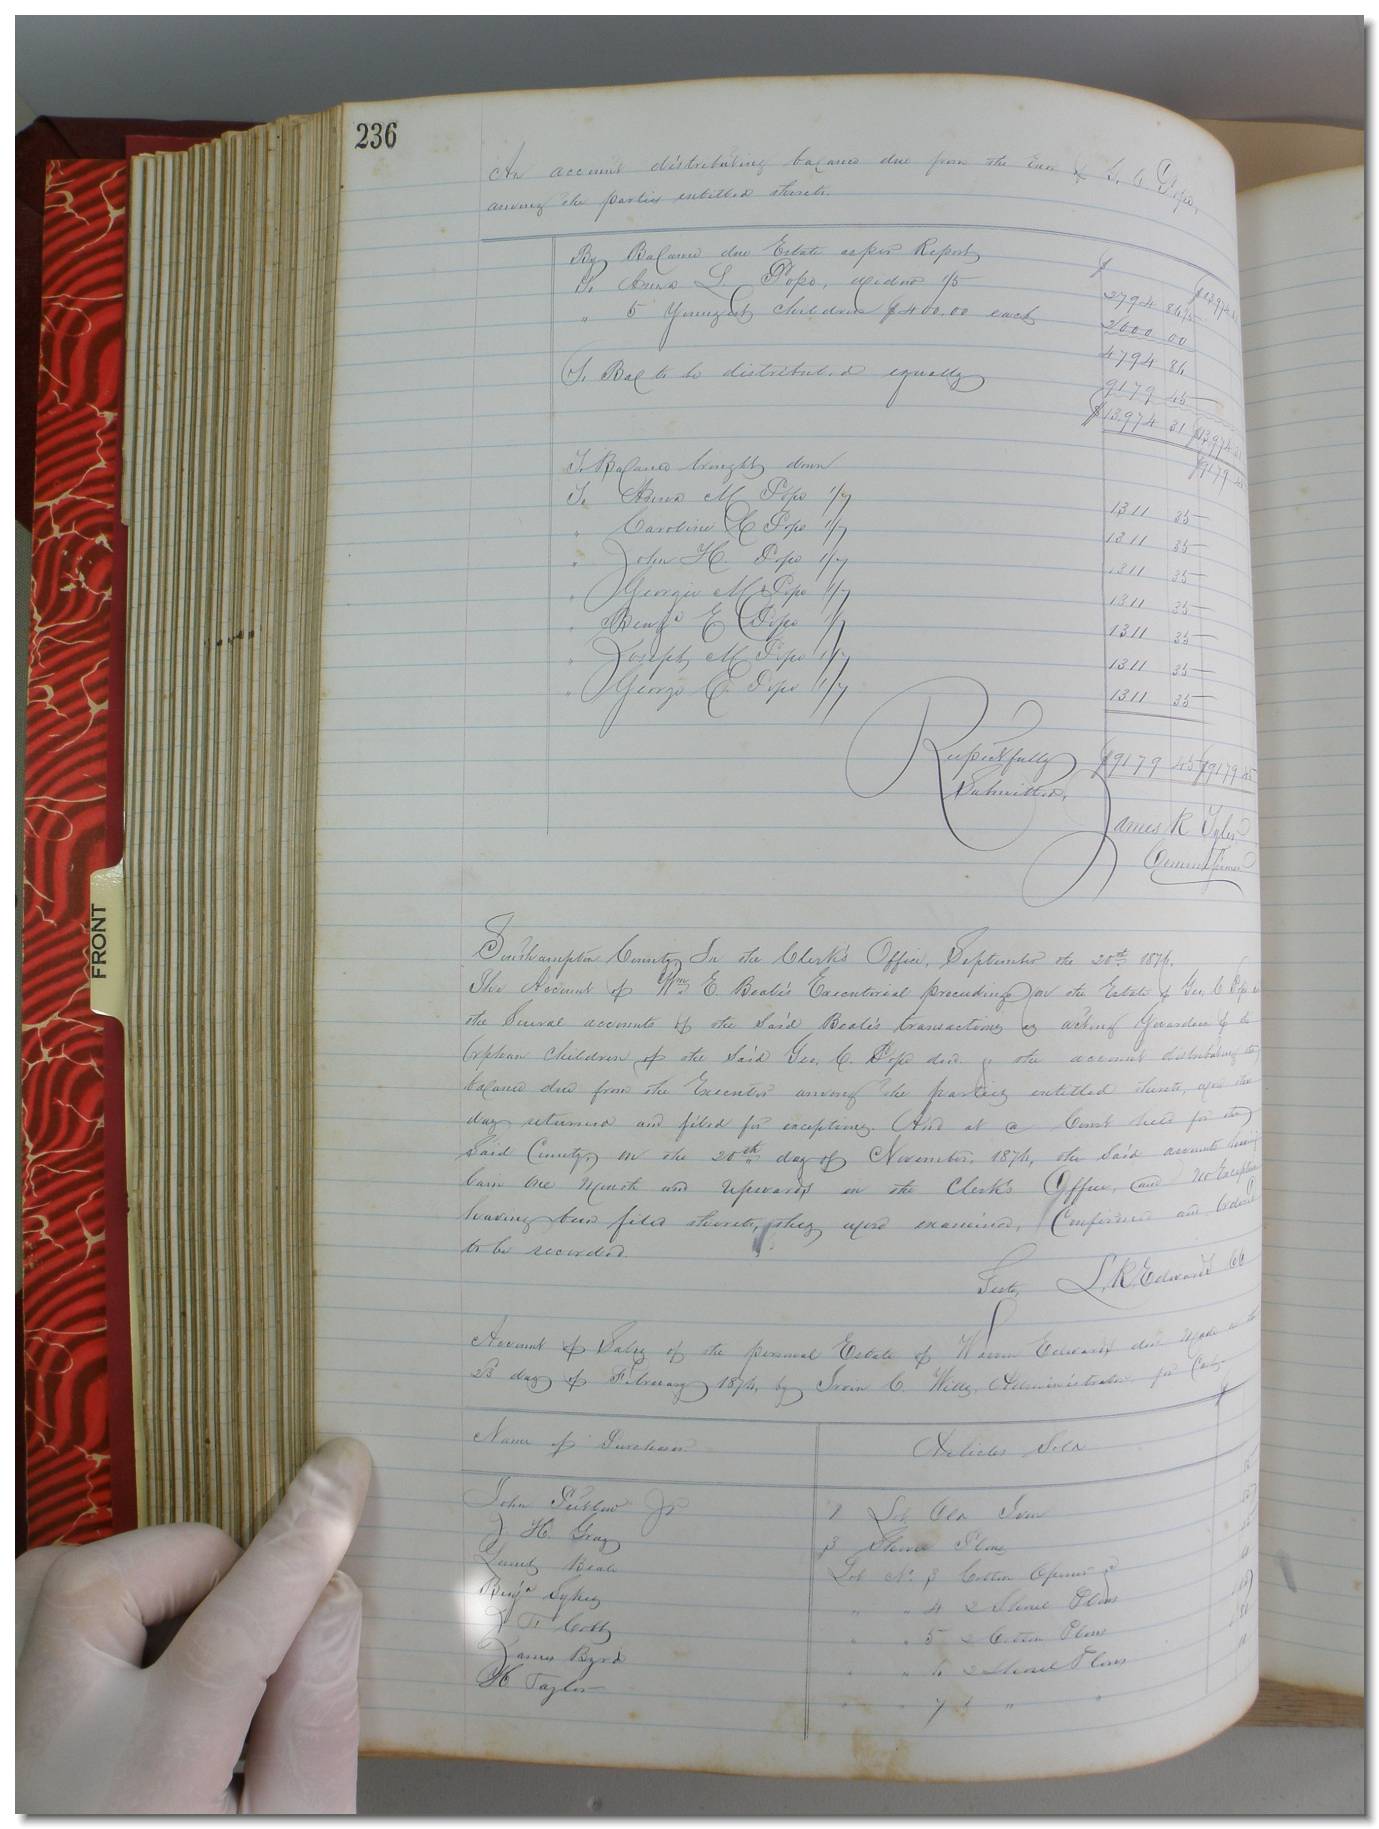 236
An account distributing balance due from the Exor of G. C Pope,
among the parties entitled thereto.
By Balance due Estate as per Report $13974 31
To Anna L Pope, widow 1/5 $2794 86
" 5 Youngest children $400.00 each 2000 00
4794 86
To Bal to be distributed equally 9179 45
$13.974 31 $13.974 31
To Balance brought down $9179 45
To Anna M Pope 1/7 1311 35
" Caroline Pope 1/7 1311 35
" John H. Pope 1/7 1311 35
" Georgie M Pope 1/7 1311 35
" Benja E Pope 1/7 1311 35
" Joseph M Pope 1/7 1311 35
" George C. Pope 1/7 1311 35
$9179 45 $9179 45
Respectfully
Submitted,
James R Tyler
Commissioner
Southampton County, In the Clerk's Office, September the 20th 1876.
The Account of Wm E. Beale's Executorial proceedings on the Estate of Geo. C Pope
the several accounts of the said Beale's transactions as acting Guardian of the
Orphan children of the said Geo. C. Pope decd. & the account distributing the
balance due from the Executor among the parties entitled thereto, was this
day returned and filed for exceptions. And at a Court held for the
said County, on the 20th day of November, 1876, the said accounts having
laid one month and upwards in the Clerk's Office, and no Exception
having been filed thereto, they were examined, Confirmed and Ordered
to be recorded.
Teste, L. R. Edwards CC
Account of Sales of the personal Estate of Edwards decd made on the
23 day of February 1876, by C. Wills, Administrator, for Cash
Name of Purchaser Articles Sold $
John Jr 1 Lot Old Iron
J H. Gray 3 Shovel Plows
Beale Lot No 3 Cotton &
Benja Sykes " " 4 2 Shovel Plows
J T. Cobb " " 5 2 Cotton Plows
James Byrd " " 6 2 Shovel Plows
H Taylor " " 7 " "
FRONT